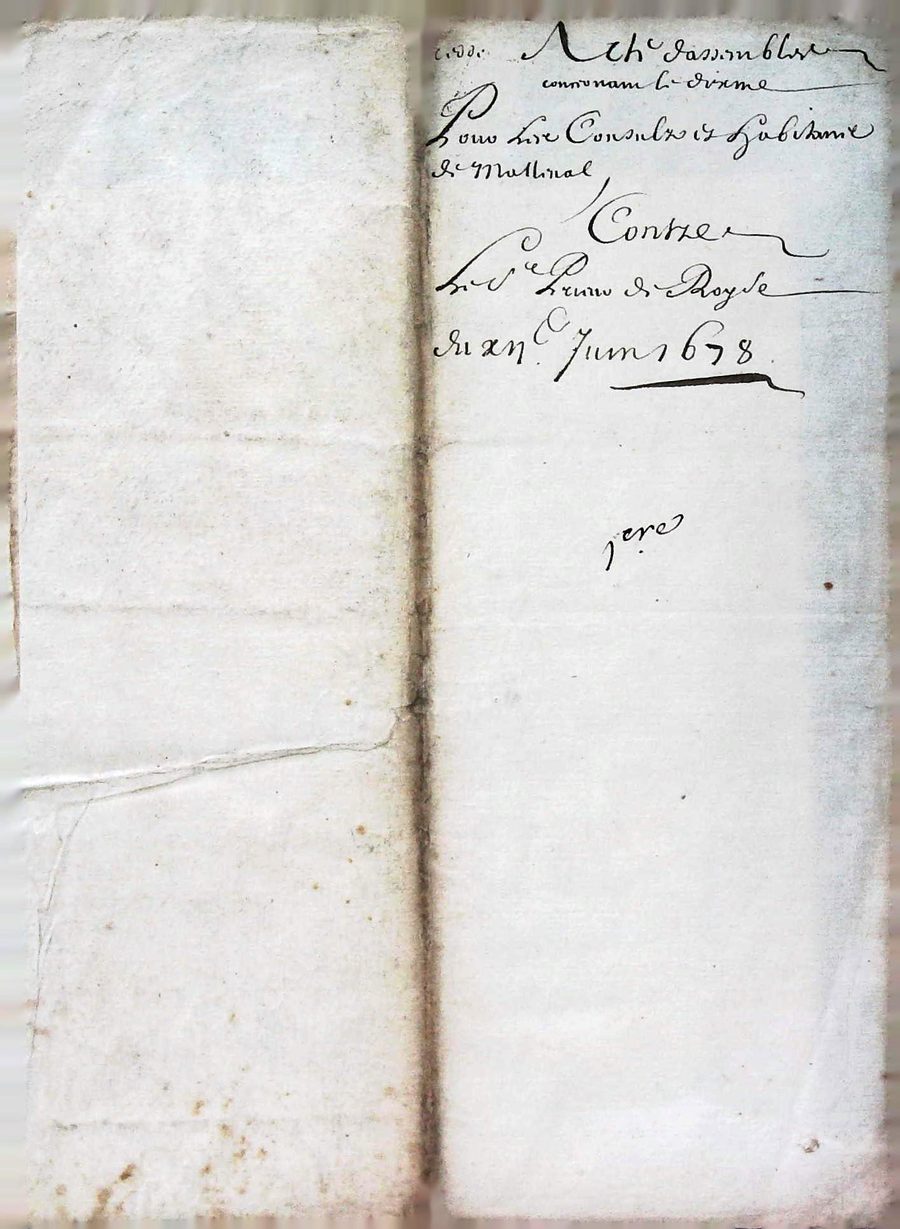 Acte dassemblee
concernant le dixme
Pour Les Consulz et Habitans
de Mallenal
Contre
Le Sr Prieur de Royde
du xije Juin 1678
1ere